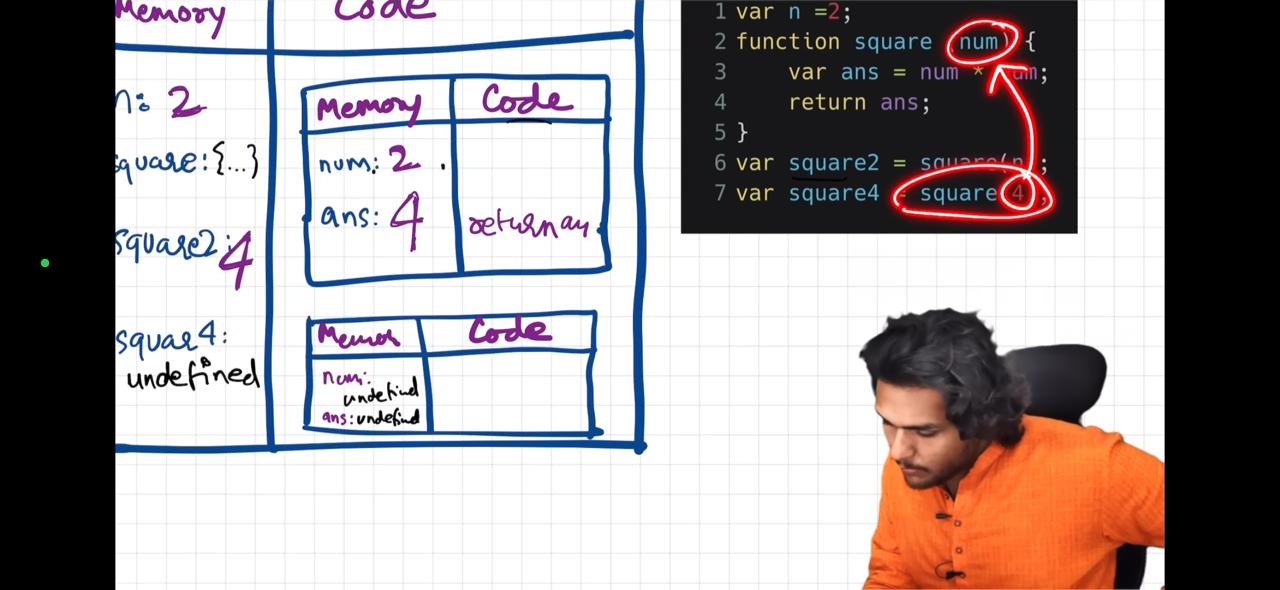 Memory
Code
n: 2
square:{...}
square2:4
squar4:
undefined
Memory
Code
num: 2
ans: 4
return an
Code
num:
undefind
ans: undefind
1 var n =2;
2 function square (num) {
3 var ans = num * num;
4 return ans;
5 }
6 var square2 = square(n);
7 var square4 = square(4);